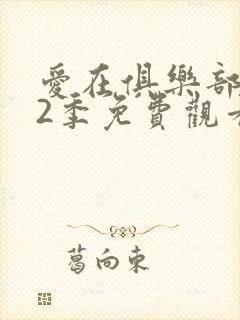 愛在俱樂部
2季免費觀看
葛向東